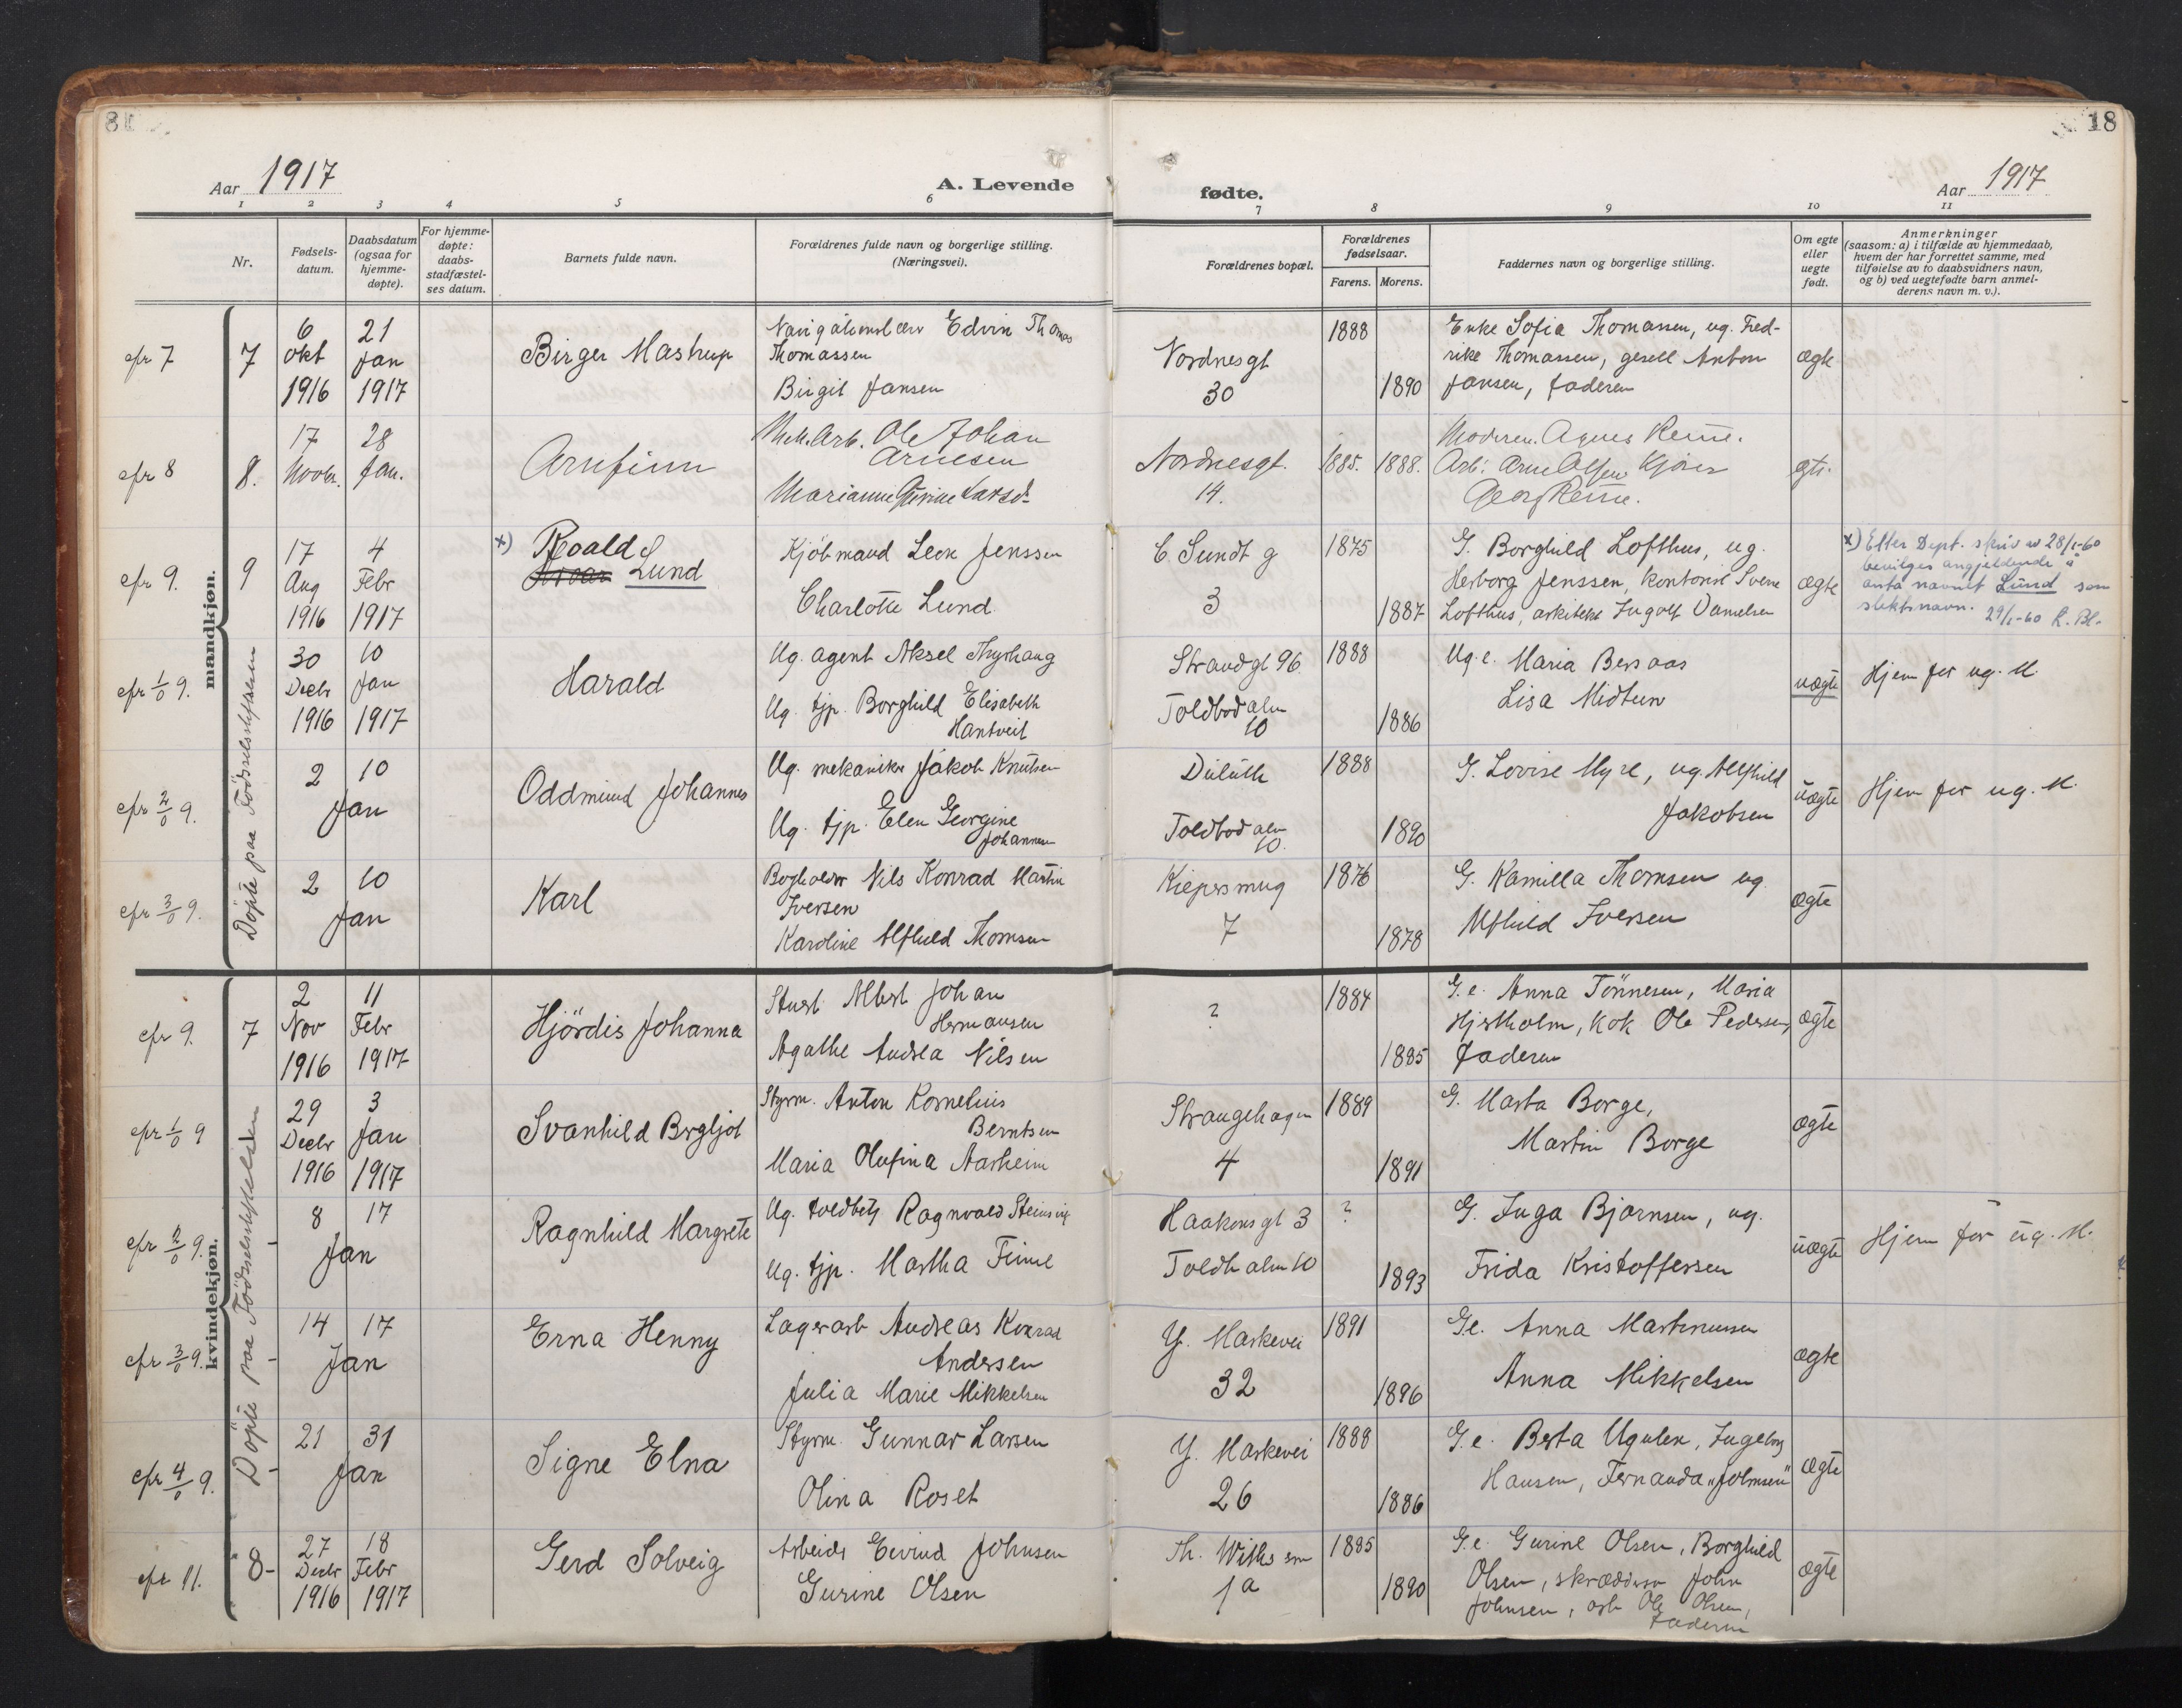 18
Aar 1917
A. Levende
fødte.
Aar 1917
1 2 3 4 5 6 7 8 9 10 11
Nr.
Fødsels-
datum.
Daabsdatum
(ogsaa for
hjemme-
døpte).
For hjemme-
døpte:
daabs-
stadfæstel-
ses datum.
Barnets fulde navn.
Forældrenes fulde navn og borgerlige stilling.
(Næringsvei).
Forældrenes bopæl.
Forældrenes
fødselsaar.
Farens. Morens.
Faddernes navn og borgerlige stilling.
Om egte
eller
uegte
født.
Anmerkninger
(saasom: a) i tilfælde av hjemmedaab,
hvem der har forrettet samme, med
tilføielse av to daabsvidners navn,
og b) ved uegtefødte barn anmel-
derens navn m. v.).
mandkjøn.
Døpte paa Fødselsstiftelsen
cfr 7
7
6
Okt
1916
21
Jan
1917
Birger Mastrup
Edvin Thomas
Thomassen
Birgit Jansen
Nordnesgt
30
1888
1890
Enke Sofia Thomassen, ug. Fred-
rike Thomassen, gesell Anton
Jansen, Faderen
ægte
cfr 8
8.
17
Novbr.
28
Jan.
Arnfinn
Mek. Arb. Ole Johan
Arnesen
Marianne
Nordnesgt.
14.
1885. 1888.
Moderen. Agnes
Arb:
Georg
cfr 9.
9
17
Aug
1916
4
Febr
1917
x) Roald
Lund
Kjøbmand Leon Jenssen
Charlotte Lund
C. Sundt g
3
1875
1887
G. Borghild Lofthus, ug.
Herborg Jenssen, kontorist Sverre
Lofthus, arkitekt Ingolf Danielsen
ægte
x) Efter Dept. skriv av 28/1-60
bevilges angjeldende å
anta navnet Lund som
slektsnavn.
29/1-60 K. Bl.
cfr 1/0 9.
30
Decbr
1916
10
Jan
1917
Harald
Ug. agent Aksel
Ug. tjp. Borghild Elisabeth
Hantveit
Strandgt 96
Toldbodalm
10
1888
1886
Ug. e. Maria Bersaas
Lisa Midtun
uægte
Hjem for ug. M.
cfr 2/0 9.
2
10
Jan
Oddmund Johannes
Ug. mekaniker Jakob Knutsen
Ug. tjp. Elen Georgine
Johannesen
Duluth
Toldbodalm
10.
1888
1890
G. Lovise Myre, ug. Alfhild
Jakobsen
uægte
Hjem for ug. M.
cfr 3/0 9.
2
10
Jan
Karl
Bogholder Nils Konrad Martin
Iversen
Karoline Alfhild Thomsen
7
1876
1878
G. Kamilla Thomsen ug.
Alfhild Iversen
ægte
kvindekjøn.
Døpte paa Fødselsstiftelsen
cfr 9.
7
2
Nov
1916
11
Febr
1917
Hjördis Johanna
Stuert Albert Johan
Hermansen
Agathe Andrea Nilsen
?
1884
1885
G. e. Anna Tönnesen, Maria
Hjertholm, kok Ole Pedersen,
Faderen
ægte
cfr 1/0 9
29
Decbr
1916
3
Jan
1917
Svanhild Bergljot
Styrm. Anton Kornelius
Berntsen
Maria Olufina Aarheim
Strangehagen
4
1889
1891
G. Marta Borge,
Martin Borge
ægte
cfr 2/0 9.
8
17
Jan
Ragnhild Margrete
Ug. toldbetj Ragnvald Steinsvig
Ug. tjp. Martha Finne
Haakonsgt 3
Toldb alm 10
?
1893
G. Inga Bjørnsen, ug.
Frida Kristoffersen
uægte
Hjem for ug. M.
cfr 3/0 9.
14
17
Jan
Erna Henny
Lagerarb Andreas Konrad
Andersen
Julia Marie Mikkelsen
Y. Markevei
32
1891
1896
G e. Anna Martinussen
Anna Mikkelsen
ægte
cfr 4/0 9.
21
31
Jan
Signe Elna
Styrm. Gunnar Larsen
Olina Roset
Y. Markevei
26
1888
1886
G. e. Berta Ugulen, Ingeborg
Hansen, Fernanda Johnsen
ægte
cfr 11.
8
27
Decbr
1916
18
Febr
1917
Gerd Solveig
Arbeider Eivind Johnsen
Gurine Olsen
1a
1885
1890
G. e. Gurine Olsen, Borghild
Olsen, skrædder John
Johnsen, arb Ole Olsen,
Faderen
ægte